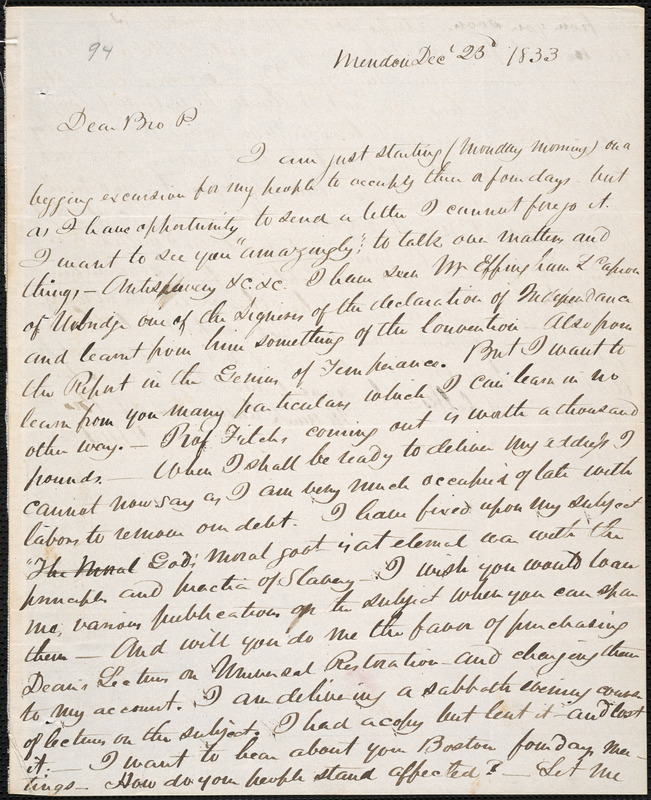 94
Mendon Dec 23d 1833
Dear Bro P.
I am just starting (Monday morning) on a
begging excursion for my people to occupy three or four days but
as I have opportunity to send a letter I cannot forego it.
I want to see you "amazingly": to talk over matters and
things, — Antislavery &c. &c. I have seen Mr Effingham L Capron
of Uxbridge one of the signers of the declaration of Independance
and learnt from him something of the Convention — Also from
the Report in the Genius of Temperance. But I want to
learn from you many particulars which I can learn in no
other way. — Prof. Fitchs coming out is worth a thousand
pounds. — When I shall be ready to deliver my address I
cannot now say as I am very much occupied of late with
labors to remove our debt. I have fixed upon my subject
"The Moral God's moral govt is at eternal war with the
principles and practice of Slavery — I wish you would loan
me, various publications on the subject when you can spare
them — And will you do me the favor of purchasing
Dean's Lectures on Universal Restoration and charging them
to my account. I am delivering a sabbath evening course
of lectures on the subject. I had a copy but lent it and lost
it. — I want to hear about you Boston four days mee-
tings — How do your people stand affected? — Let me